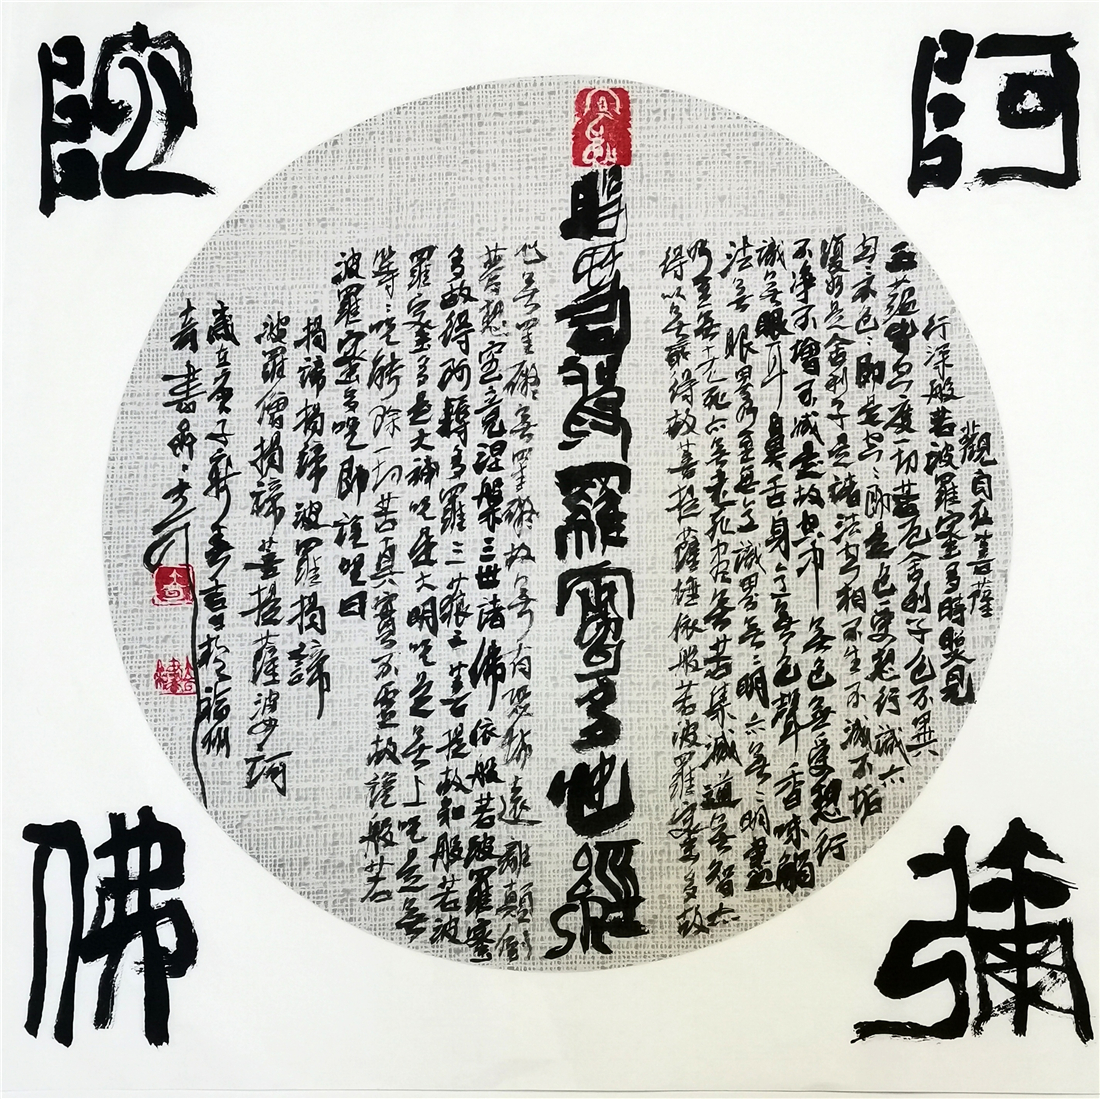 阿
彌
陀
佛
觀自在菩薩
行深般若波羅蜜多時照見
五蘊皆空度一切苦厄舍利子色不異
空空不色色即是空空即是色受想行識亦
復如是舍利子是諸法空相不生不滅不垢
不淨不增不減是故空中無色無受想行
識無眼耳鼻舌身意無色聲香味觸
法無眼界乃至無意識界無無明亦無無明盡
乃至無老死亦無老死盡無苦集滅道無智亦
得以無所得故菩提薩埵依般若波羅蜜多故
般若波羅蜜多心經
心無罣礙無罣礙故無有恐怖遠離顛倒
夢想究竟涅槃三世諸佛依般若波羅蜜
多故得阿耨多羅三藐三菩提故知般若波
羅蜜多是大神咒是大明咒是無上咒是無
等等咒能除一切苦真實不虛故說般若
波羅蜜多咒即說咒曰
揭諦揭諦波羅揭諦
波羅僧揭諦菩提薩婆訶
歲在庚子